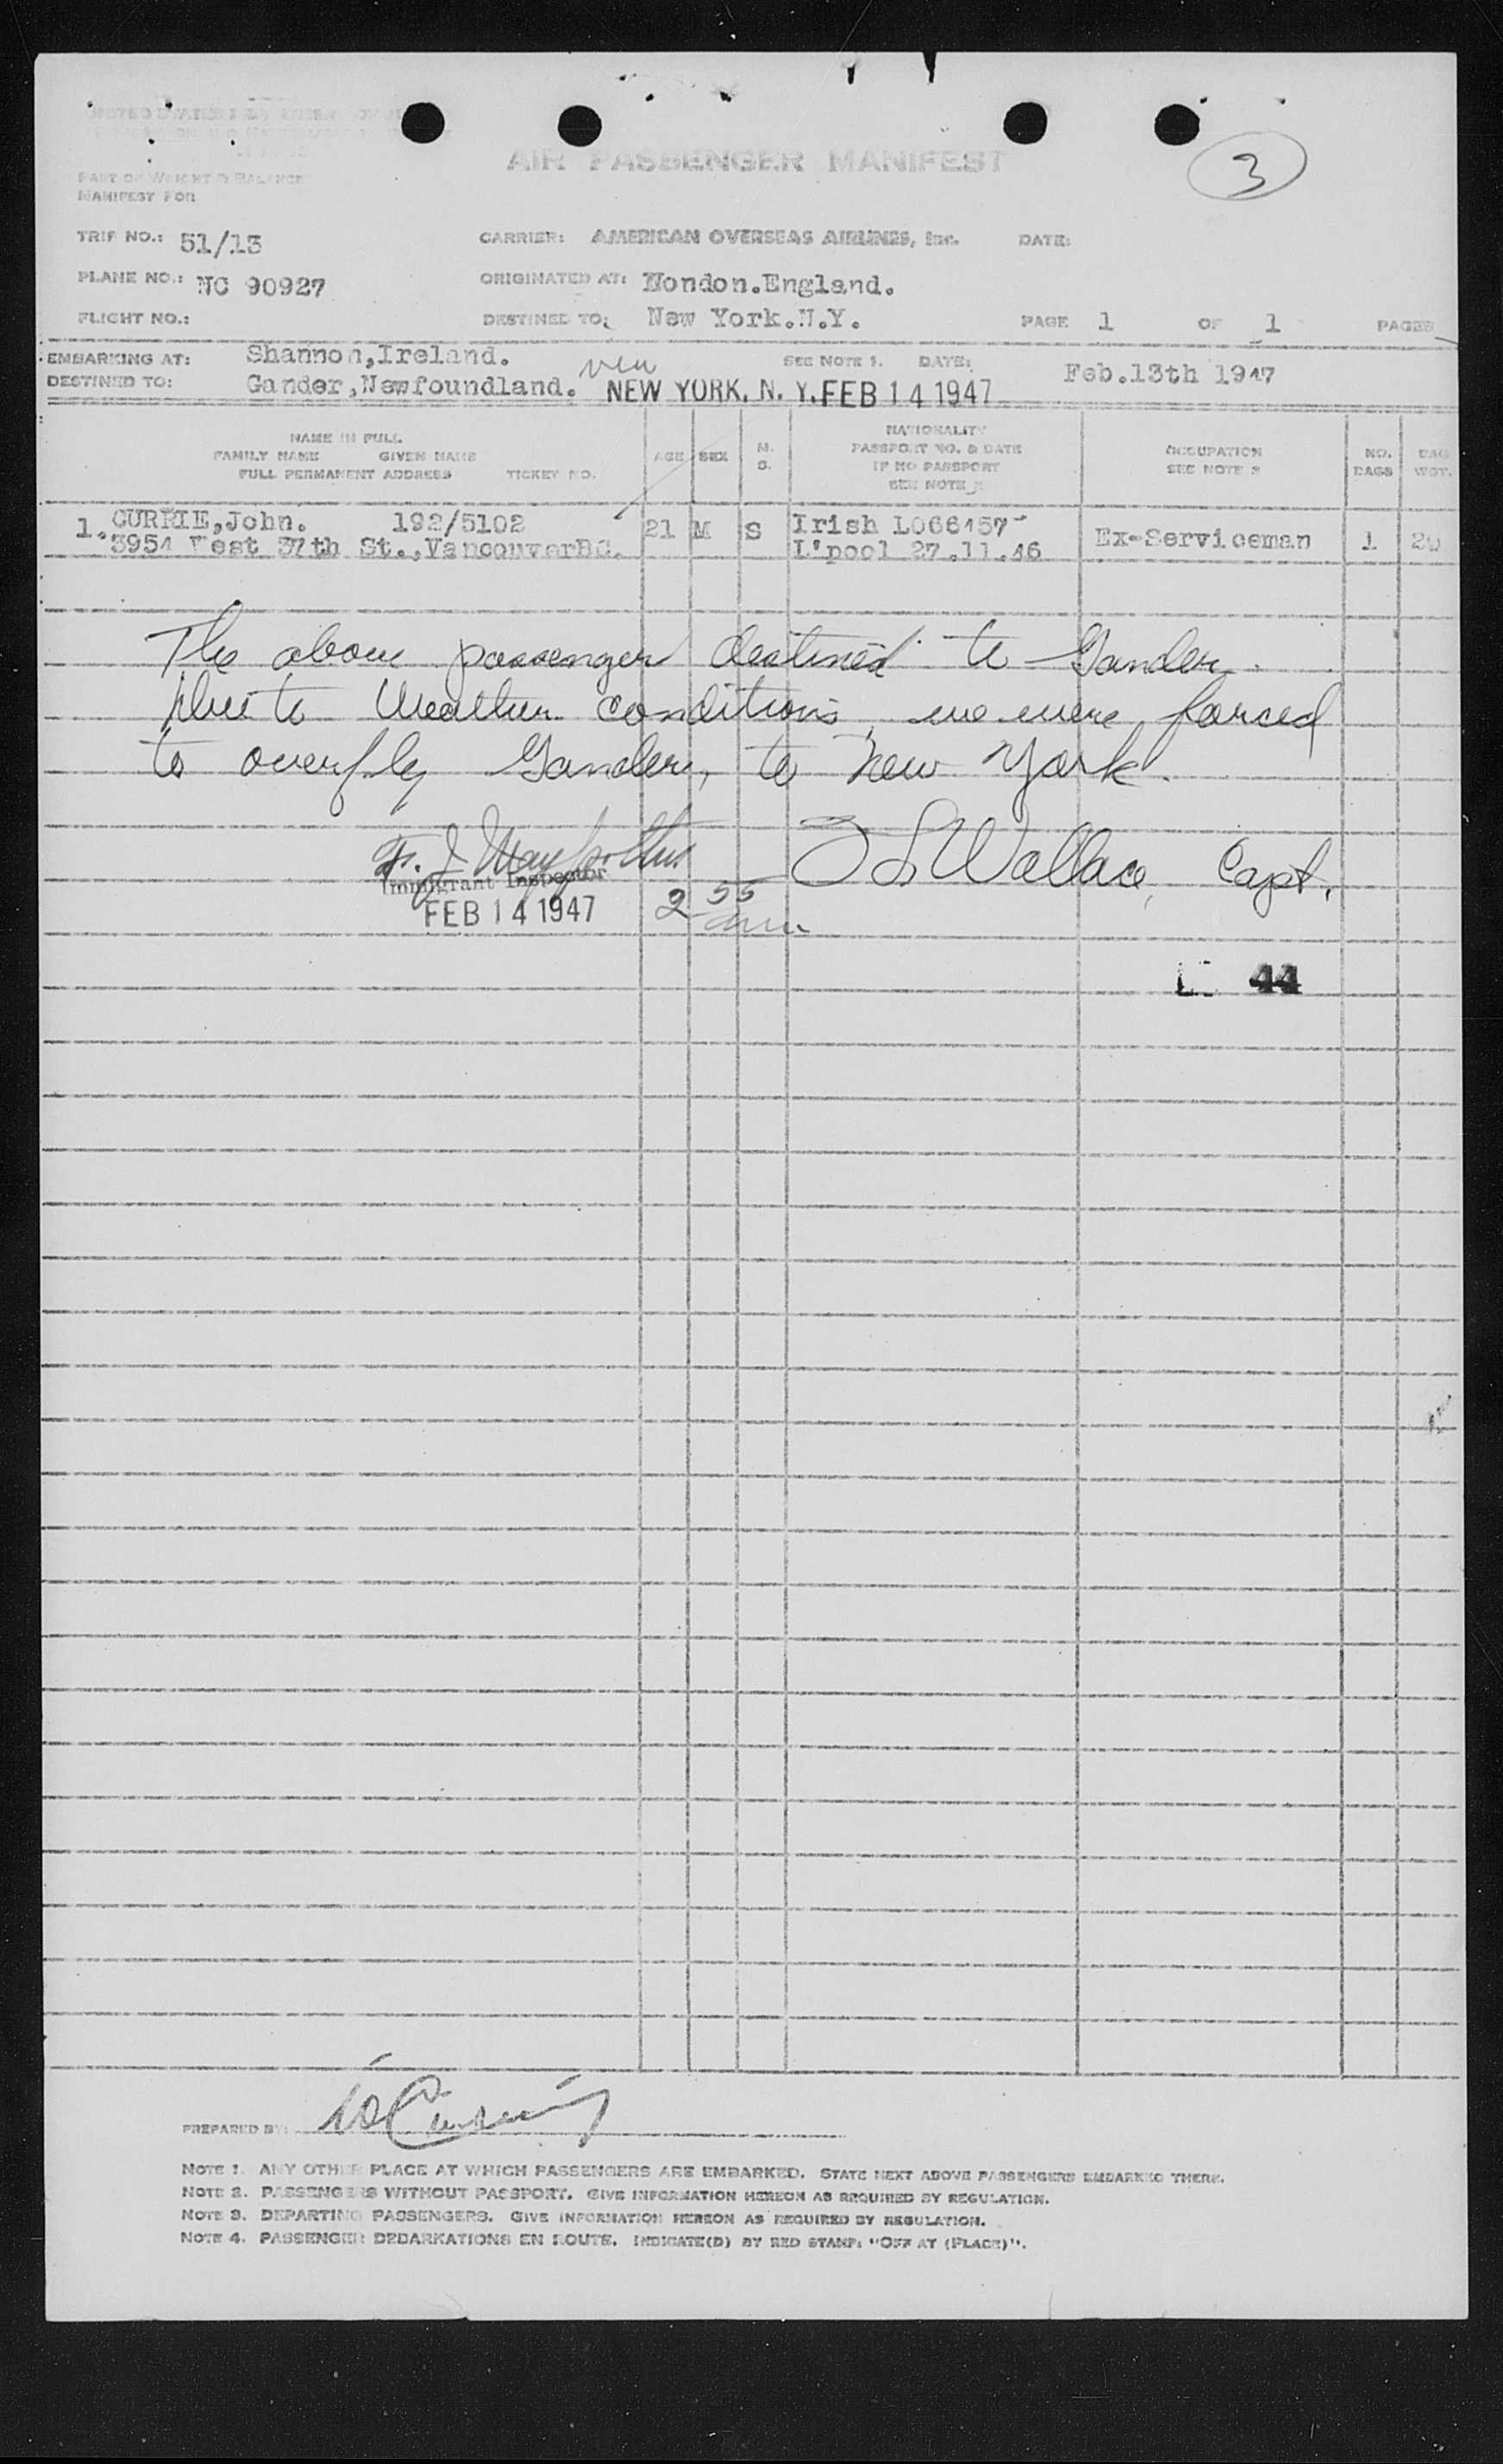 3
AIR PASSENGER MANIFEST
PART OF WEIGHT & BALANCE
MANIFEST FOR
TRIP NO.: 51/13 CARRIER: AMERICAN OVERSEAS AIRLINES, Inc. DATE:
PLANE NO.: NC 90927 ORIGINATED AT: Nondon.England.
FLIGHT NO.: DESTINED TO: New York.N.Y. PAGE 1 OF 1 PAGES
EMBARKING AT: Shannon,Ireland. SEE NOTE 1. DATE: Feb.13th 1947
DESTINED TO: Gander,Newfoundland. NEW YORK, N. Y. FEB 14 1947
NAME IN FULL
FAMILY NAME GIVEN NAME
FULL PERMANENT ADDRESS TICKET NO.
AGE SEX M. S.
NATIONALITY
PASSPORT NO. & DATE
IF NO PASSPORT
SEE NOTE
OCCUPATION
SEE NOTE 2
NO. BAGS
BAG WGT.
1. CURRIE,John. 192/5102 21 M S Irish L066457 Ex-Serviceman 1 20
3954 West 37th St.,VancouverBC. L'pool 27.11.46
The above passenger destined to Gander.
Due to Weather conditions, we were forced
to overfly Gander, to New York.
Wallace, Capt.
Immigrant Inspector
FEB 14 1947 2 55
44
PREPARED BY:
NOTE 1. ANY OTHER PLACE AT WHICH PASSENGERS ARE EMBARKED. STATE NEXT ABOVE PASSENGERS EMBARKED THERE.
NOTE 2. PASSENGERS WITHOUT PASSPORT. GIVE INFORMATION HEREON AS REQUIRED BY REGULATION.
NOTE 3. DEPARTING PASSENGERS. GIVE INFORMATION HEREON AS REQUIRED BY REGULATION.
NOTE 4. PASSENGER DEBARKATIONS EN ROUTE. INDICATE(D) BY RED STAMP: "OFF AT (PLACE)".